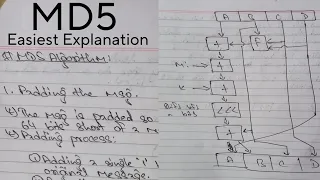 MD5
Easiest Explanation
MD5 Algorithm:
1. Padding the Msg.
The Msg is padded so
64 bits short of a M
Padding process:
Adding a single '1'
original message.
A B C D
+ F
Mi +
K +
<<<
+
A B C D